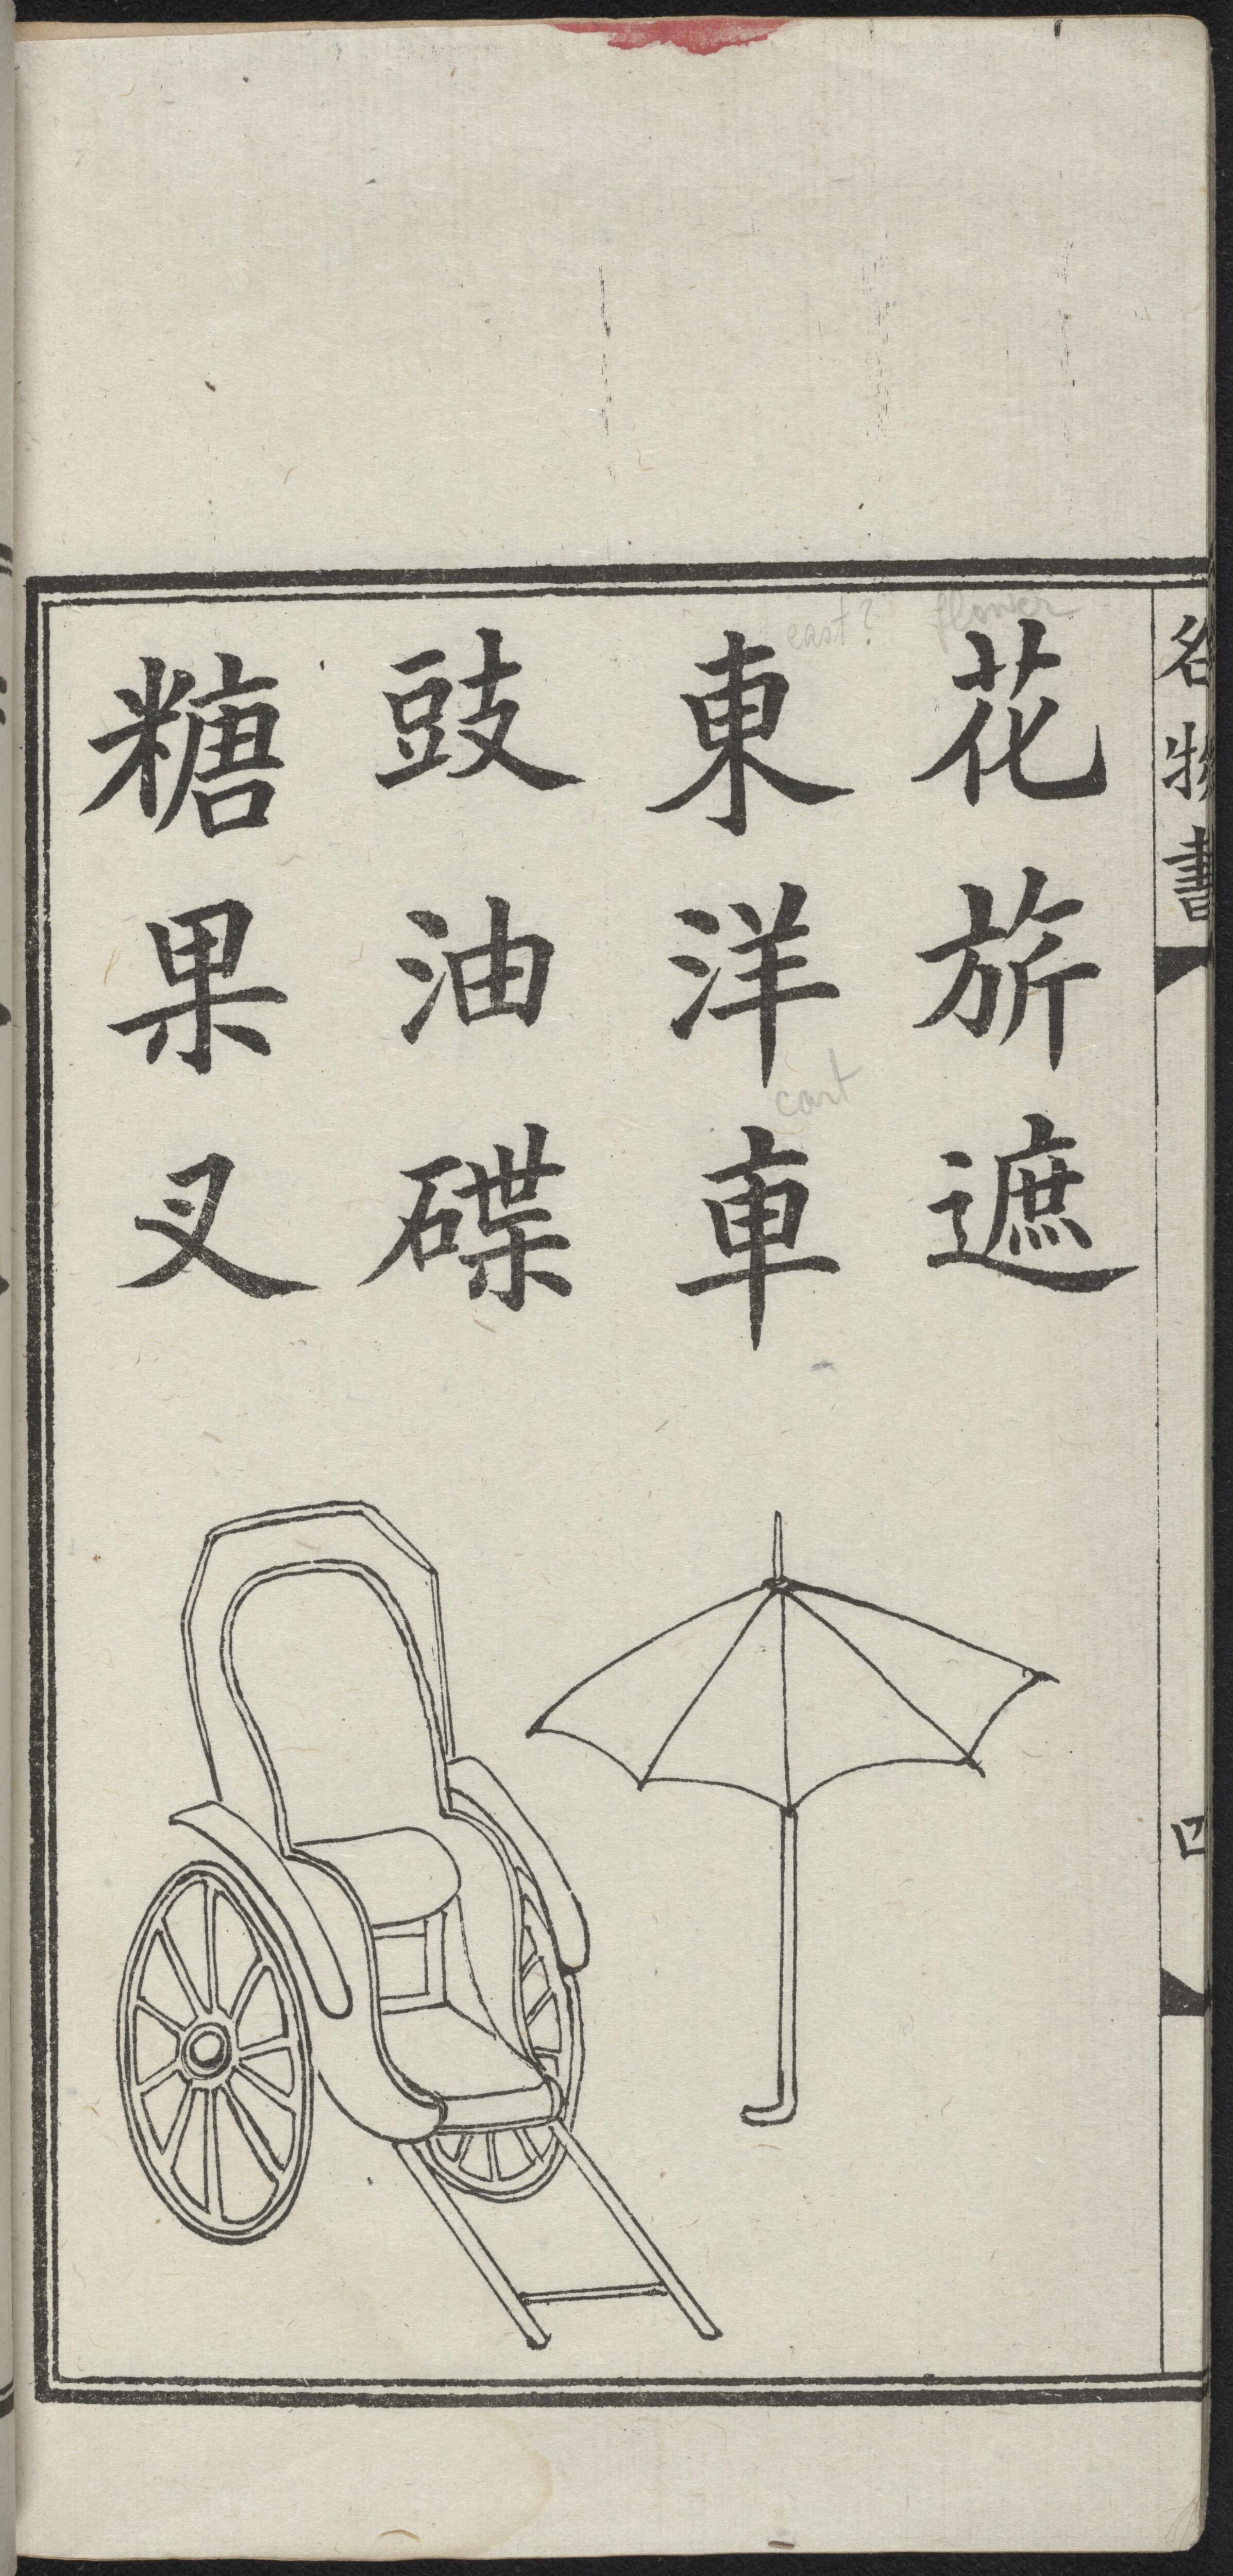 名物書
四
flower
花旂遮
east?
東洋車
cart
豉油碟
糖果叉